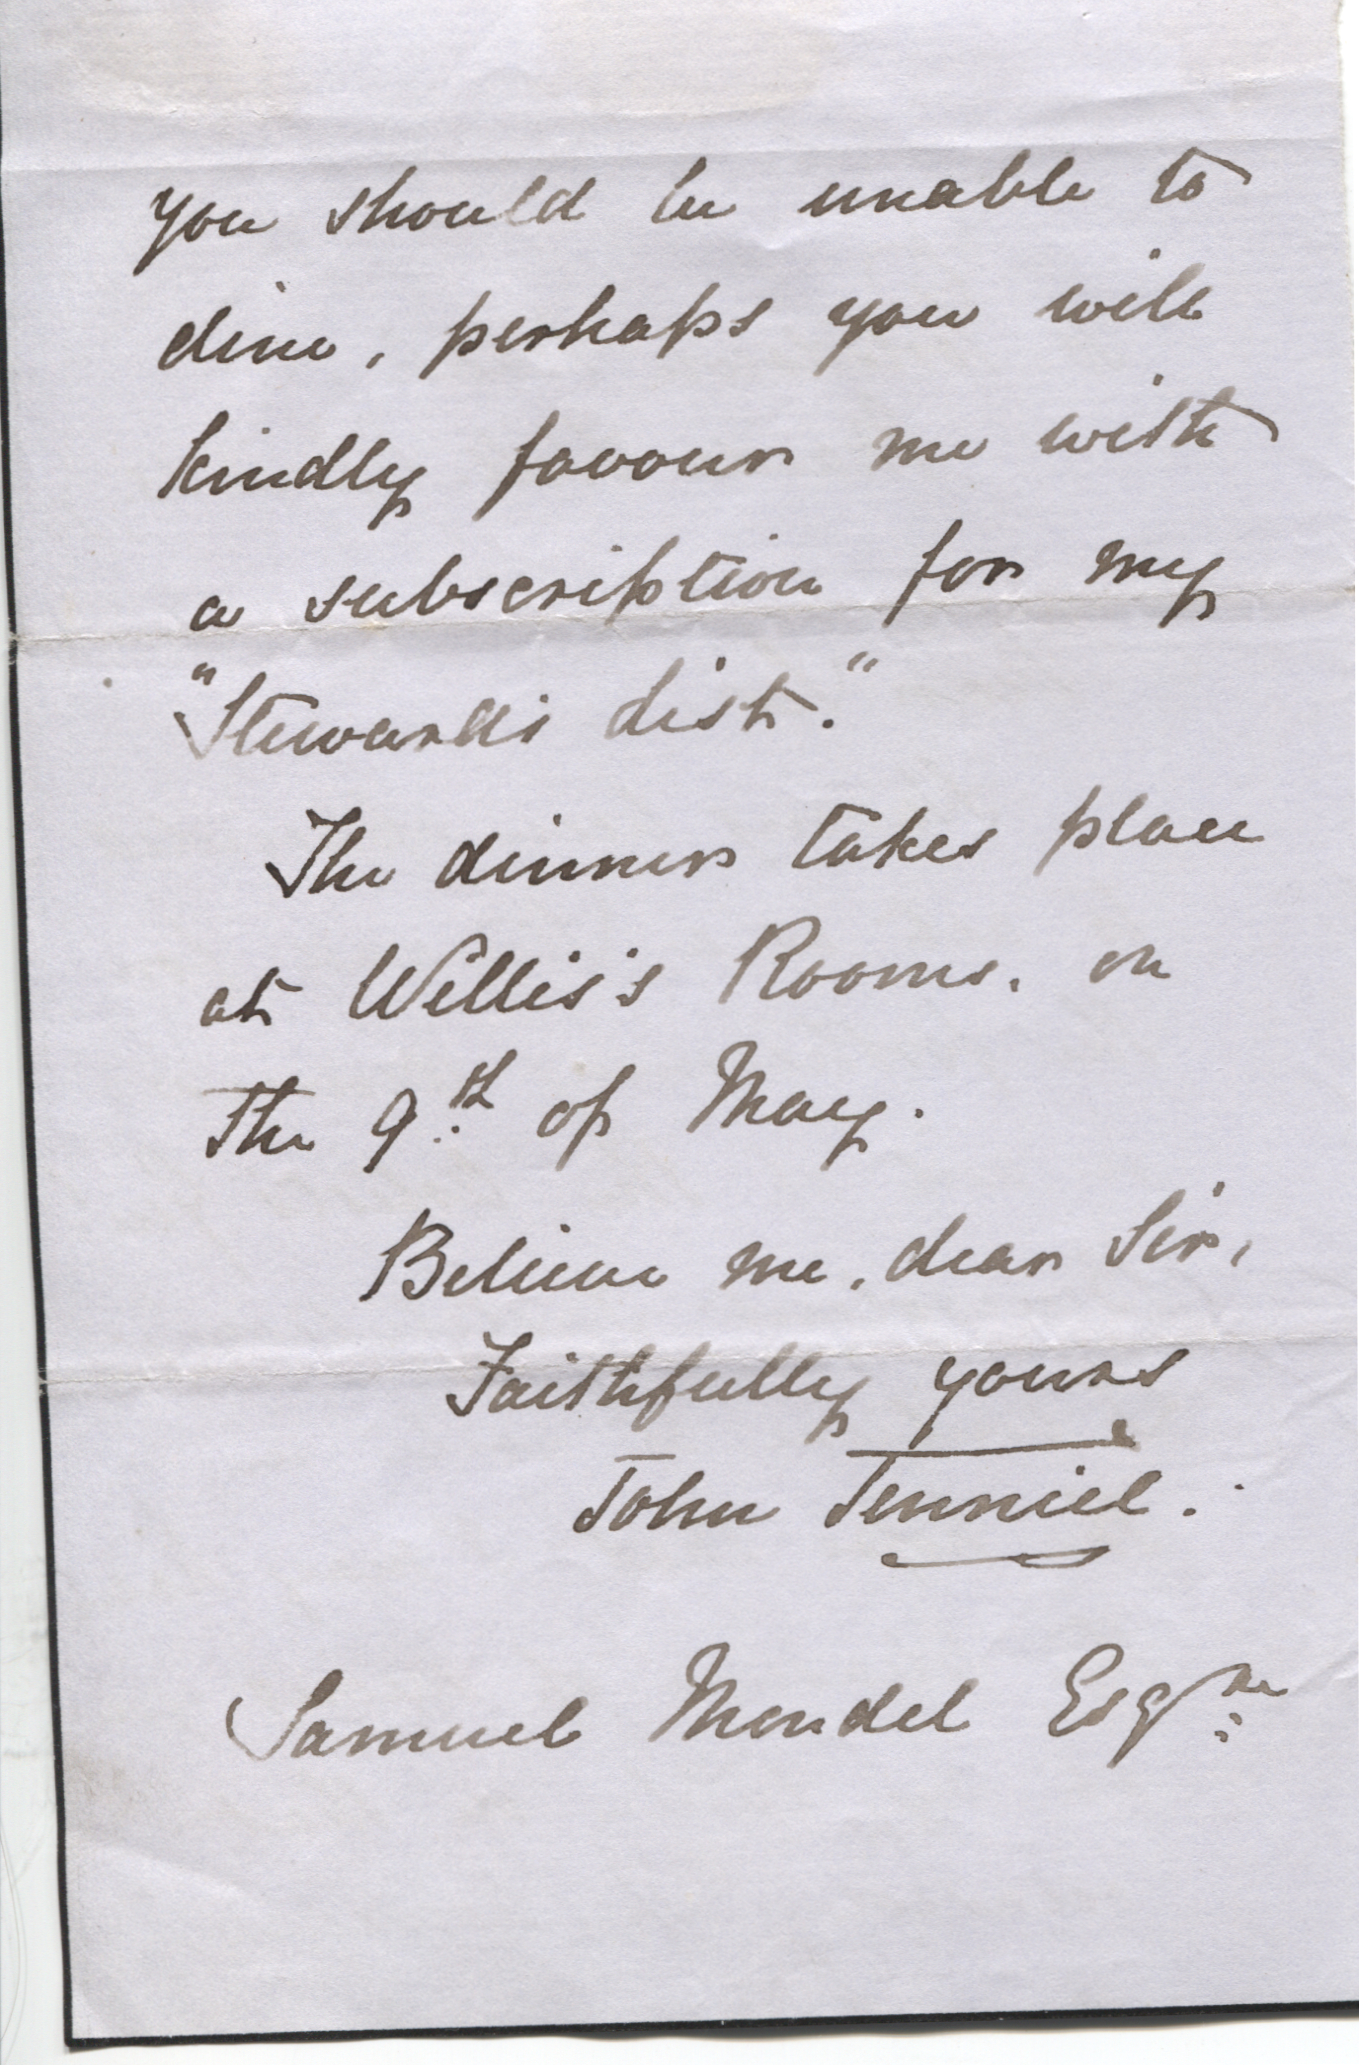 you should be unable to
dine, perhaps you will
kindly favour me with
a subscription for my
"Steward's list."
The dinner takes place
at Willis's Rooms, on
the 9th of May.
Believe me, dear Sir,
Faithfully yours
John Tenniel.
Samuel Mendel Esqre